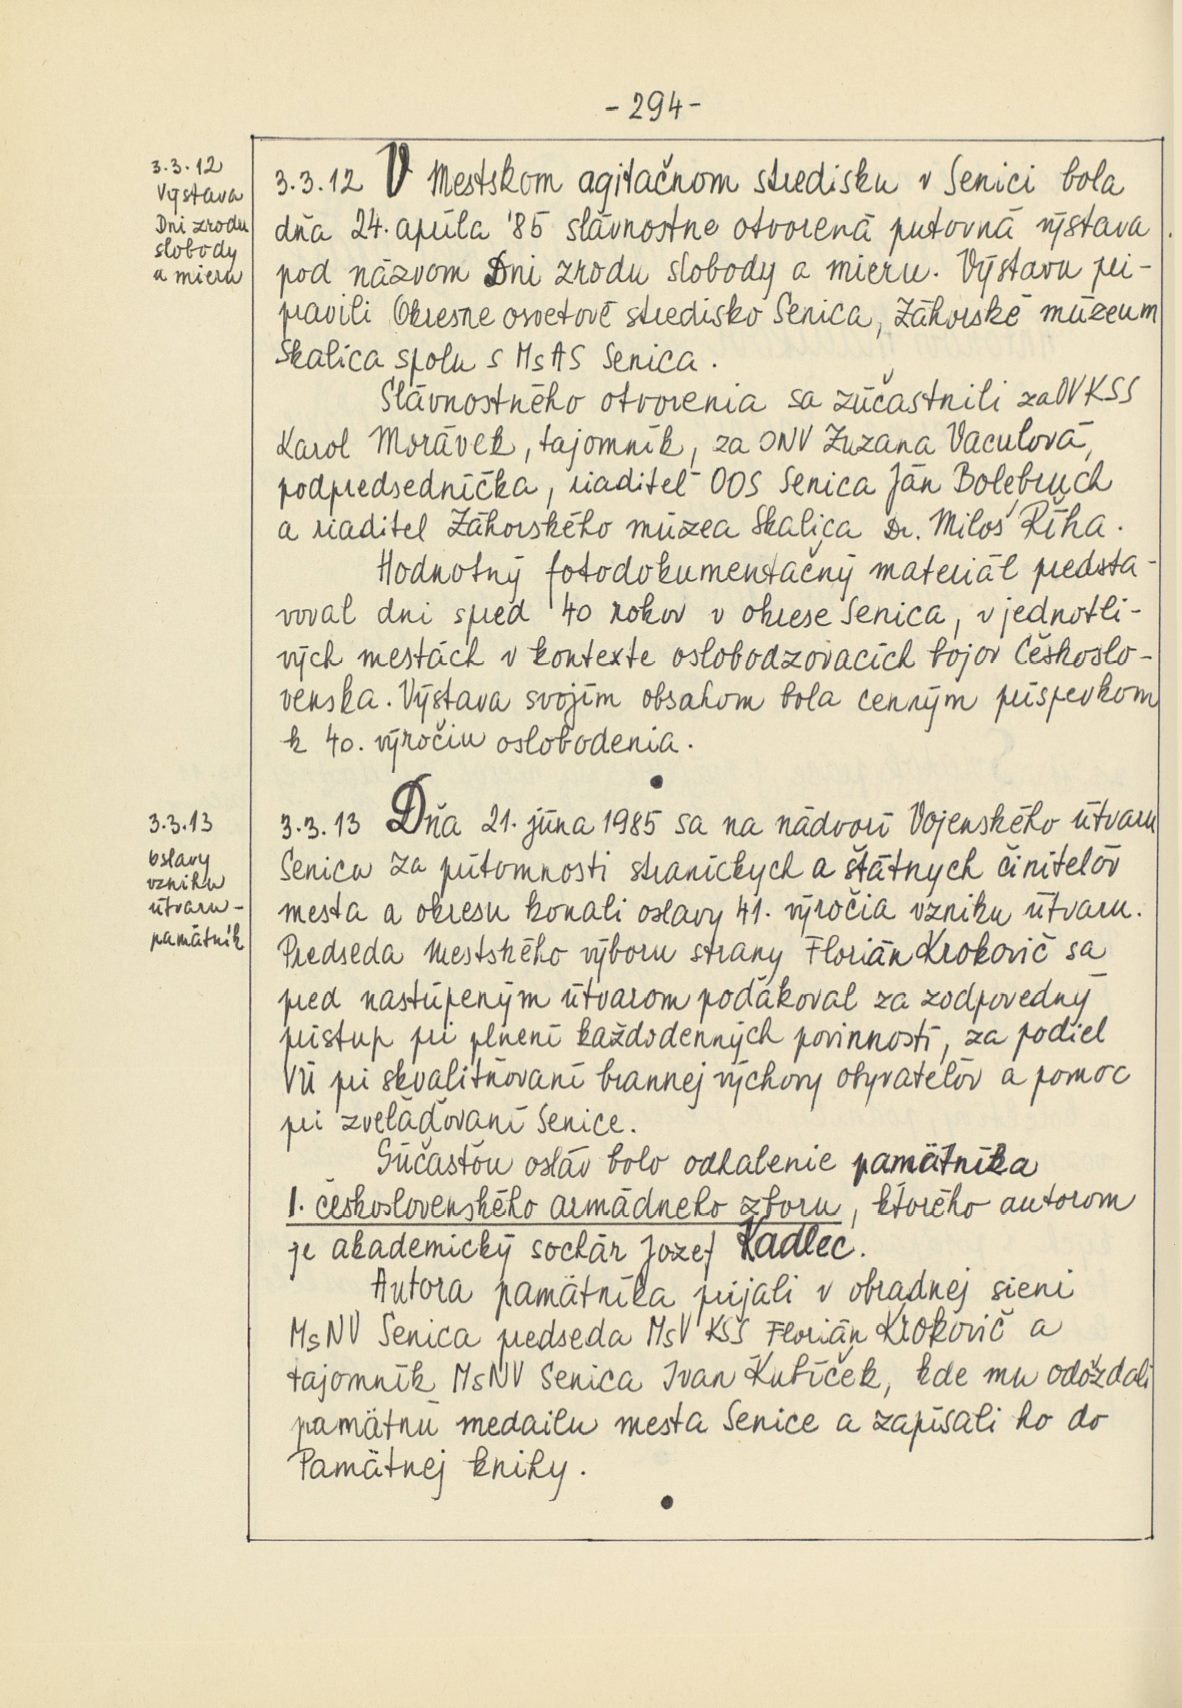 - 294 -
3.3.12
Výstava
Dni zrodu
slobody
a mieru
3.3.12 V Mestskom agitačnom stredisku v Senici bola
dňa 24. apríla '85 slávnostne otvorená putovná výstava
pod názvom Dni zrodu slobody a mieru. Výstavu pri-
pravili Okresné osvetové stredisko Senica, Záhorské múzeum
Skalica spolu s MsAS Senica.
Slávnostného otvorenia sa zúčastnili za OV KSS
Karol Morávek, tajomník, za ONV Zuzana Vaculová,
podpredsedníčka, riaditeľ OOS Senica Ján Bolebruch
a riaditel Záhorského múzea Skalica Dr. Miloš Říha.
Hodnotný fotodokumentačný materiál predsta-
voval dni spred 40 rokov v okrese Senica, v jednotli-
vých mestách v kontexte oslobodzovacích bojov Českoslo-
venska. Výstava svojím obsahom bola cenným príspevkom
k 40. výročiu oslobodenia.
3.3.13
Oslavy
vzniku
útvaru -
pamätník
3.3.13 Dňa 21. júna 1985 sa na nádvorí Vojenského útvaru
Senica za prítomnosti straníckych a štátnych činiteľov
mesta a okresu konali oslavy 41. výročia vzniku útvaru.
Predseda Mestského výboru strany Florián Krokovič sa
pred nastúpeným útvarom poďakoval za zodpovedný
prístup pri plnení každodenných povinností, za podiel
VÚ pri skvalitňovaní brannej výchovy obyvateľov a pomoc
pri zveľaďovaní Senice.
Súčasťou osláv bolo odhalenie pamätníka
1. československého armádneho zboru, ktorého autorom
je akademický sochár Jozef Kadlec.
Autora pamätníka prijali v obradnej sieni
MsNV Senica predseda MsV KSS Florián Krokovič a
tajomník MsNV Senica Ivan Kubíček, kde mu odovzdali
pamätnú medailu mesta Senice a zapísali ho do
Pamätnej knihy.